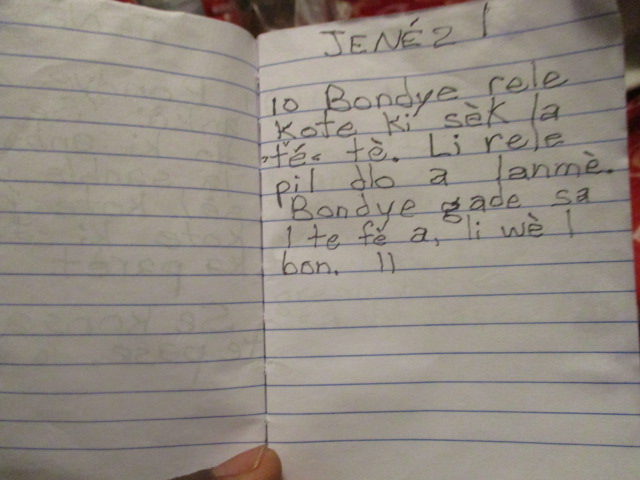 JENÉZ 1
10 Bondye rele
kote ki sèk la
"té" tè. Li rele
pil dlo a lanmè.
Bondye gade sa
l te fè a, li wè l
bon. 11